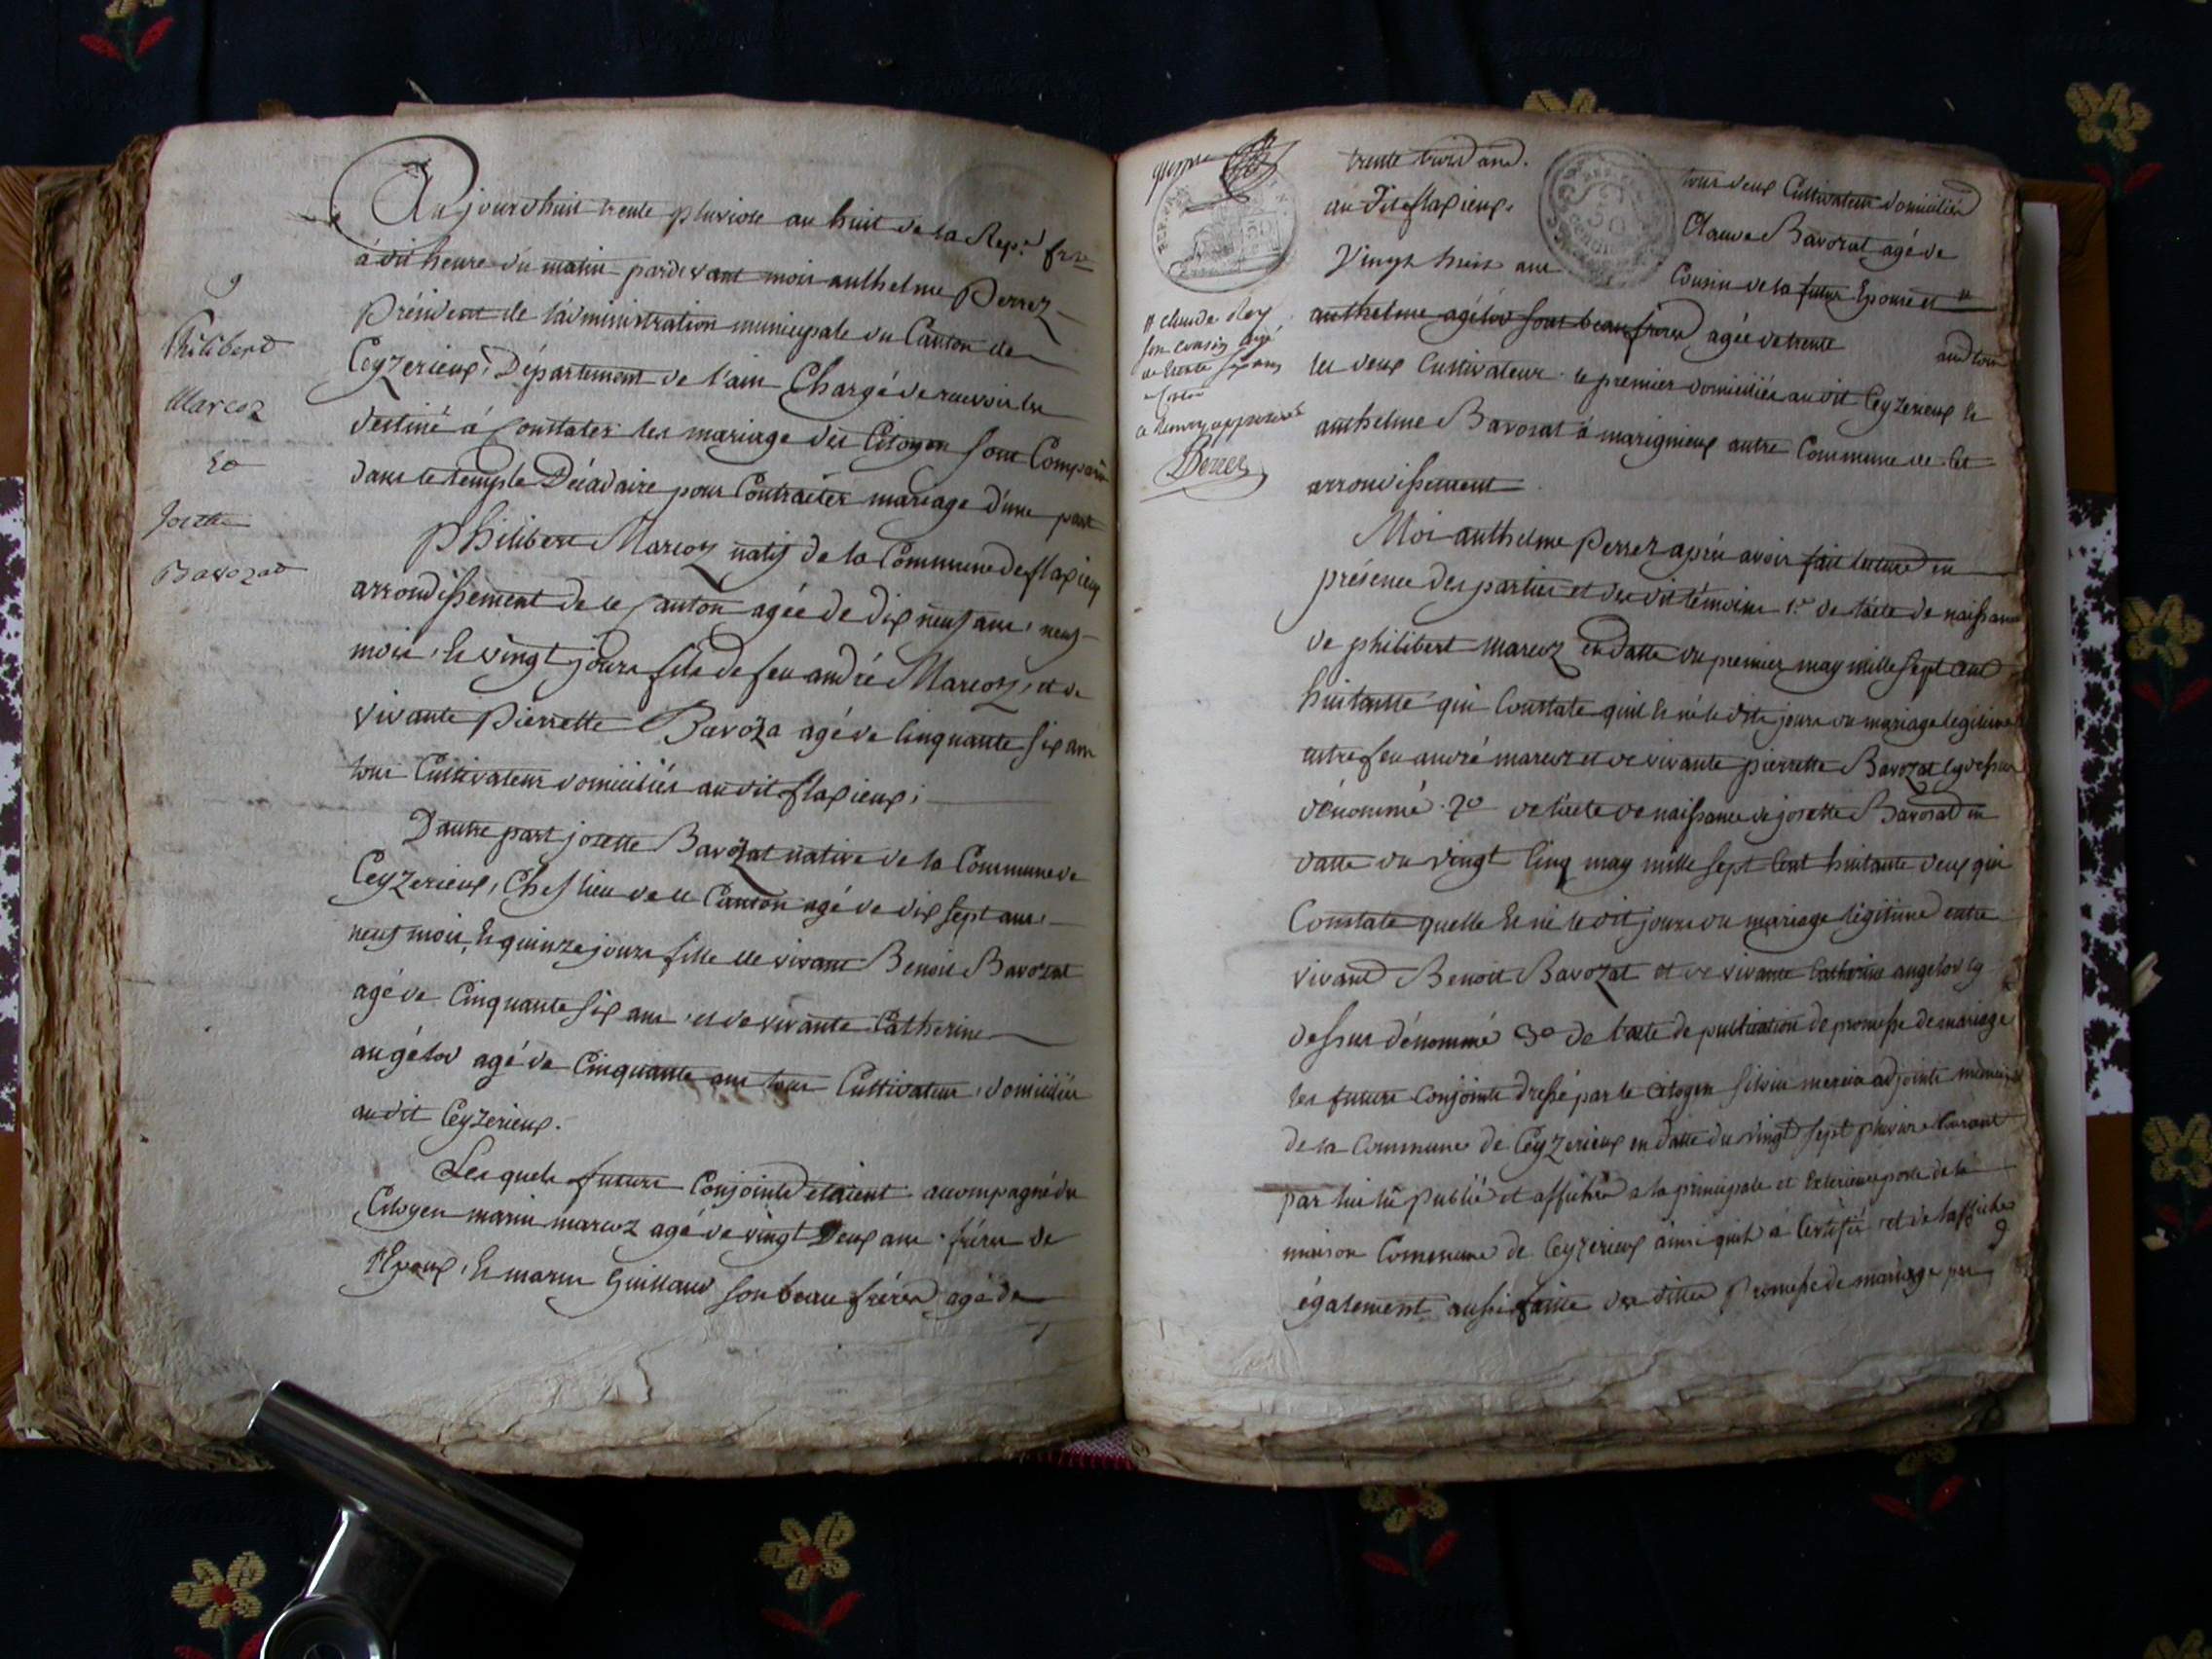 9
Philibert
Marcoz
Et
Josette
Bavozat
Aujourdhuit trente pluviose an huit de la Rep.e fr.se
à dit heure du matin pardevant moi anthelme Perrez
Président de l'administration municipale du Canton de
Ceyzerieux, Département de l'ain Chargé de recevoir les
destiné à Constater les mariage des Citoyen sont Comparu
dans le temple Décadaire pour Contracter mariage d'une part
Philibert Marcoz natif de la Commune de flaxieux
arrondissement de ce Canton agée de dix neuf ans, neuf
mois, Et vingt jours fils de feu andré Marcoz, et de
vivante Pierrette Bavoza agé de Cinquante six ans
tous Cultivateur domiciliés au dit flaxieux;
D'autre part josette Bavozat native de la Commune de
Ceyzerieux, Chef lieu de ce Canton agé de dix sept ans,
neuf mois, Et quinze jours fille de vivant Benoit Bavozat
agé de Cinquante six ans, et de vivante Catherine
angélod agé de Cinquante ans tous Cultivateur, domiciliés
au dit Ceyzerieux.
Les quels futurs Conjoints etaient accompagné du
Citoyen marin marcoz agé de vingt Deux ans, frère de
l'Epoux, Et marin Guillaud son beau frère agé de
trente trois ans. tous deux Cultivateur domiciliés
au Dit flaxieux. Claude Bavozat agé de
Vingt huit ans Cousin de la future Epouse et #
anthelme agélod sont beau frère agée de trente ans tous
les deux Cultivateur. le premier domiciliés au dit Ceyzerieux le
anthelme Bavozat à marignieux autre Commune de Cet
arrondissement
# claude Rey
son cousin agé
de trente sept ans
Perrez
Moi anthelme Perrez après avoir fait lecture en
présence des parties et des dit témoins 1.o de l'acte de naissance
de philibert marcoz en datte du premier may mille sept cent
huitante qui Constate quil Et né le dit jours du mariage légitime
entre feu andré marcoz et de vivante pierrette Bavozat cy dessus
dénommé 2o de l'acte de naissance de josette Bavozat en
datte du Vingt Cinq may mille sept Cent huitante deux qui
Constate quelle Et né le dit jours du mariage légitime entre
vivant Benoit Bavozat et de vivante Catherine angelod cy
dessus dénommé 3o de l'acte de publication de promesse de mariage
les futurs Conjoints dressé par le Citoyen silvin adjoint
de la Commune de Ceyzerieux en datte du vingt sept pluviose Courant
par lui lû publié et affiché a la principale et Exterieure porte de la
maison Commune de Ceyzerieux ainsi quil à Certifié, et de l'affiche
également aussi faitte des dittes Promesse de mariage par